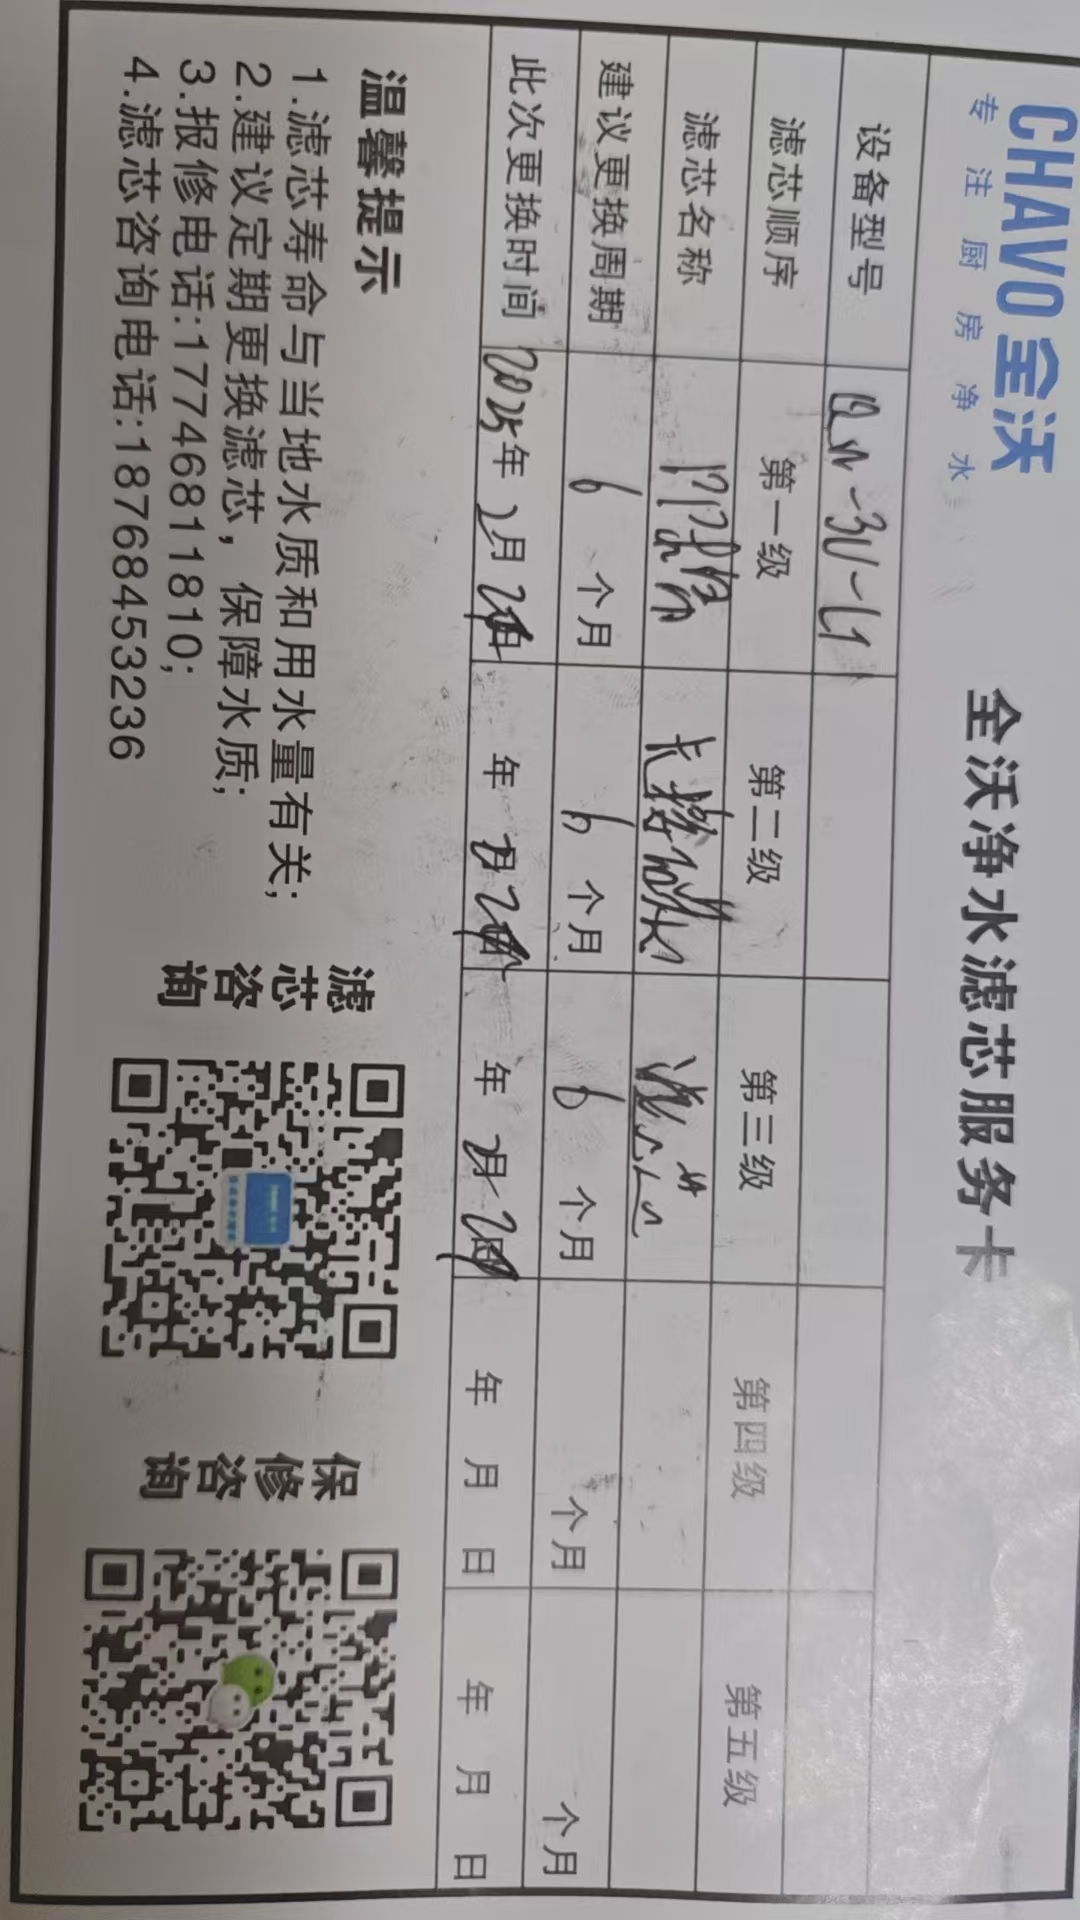 CHAVO全沃
专注厨房净水
全沃净水滤芯服务卡
设备型号
滤芯顺序 第一级 第二级 第三级 第四级 第五级
滤芯名称
建议更换周期 6个月 6个月 6个月 个月 个月
此次更换时间 2025年2月 年 月 年 2月 年 月 日 年 月 日
温馨提示
1.滤芯寿命与当地水质和用水量有关;
2.建议定期更换滤芯，保障水质;
3.报修电话:17746811810;
4.滤芯咨询电话:18768453236
滤芯咨询
保修咨询